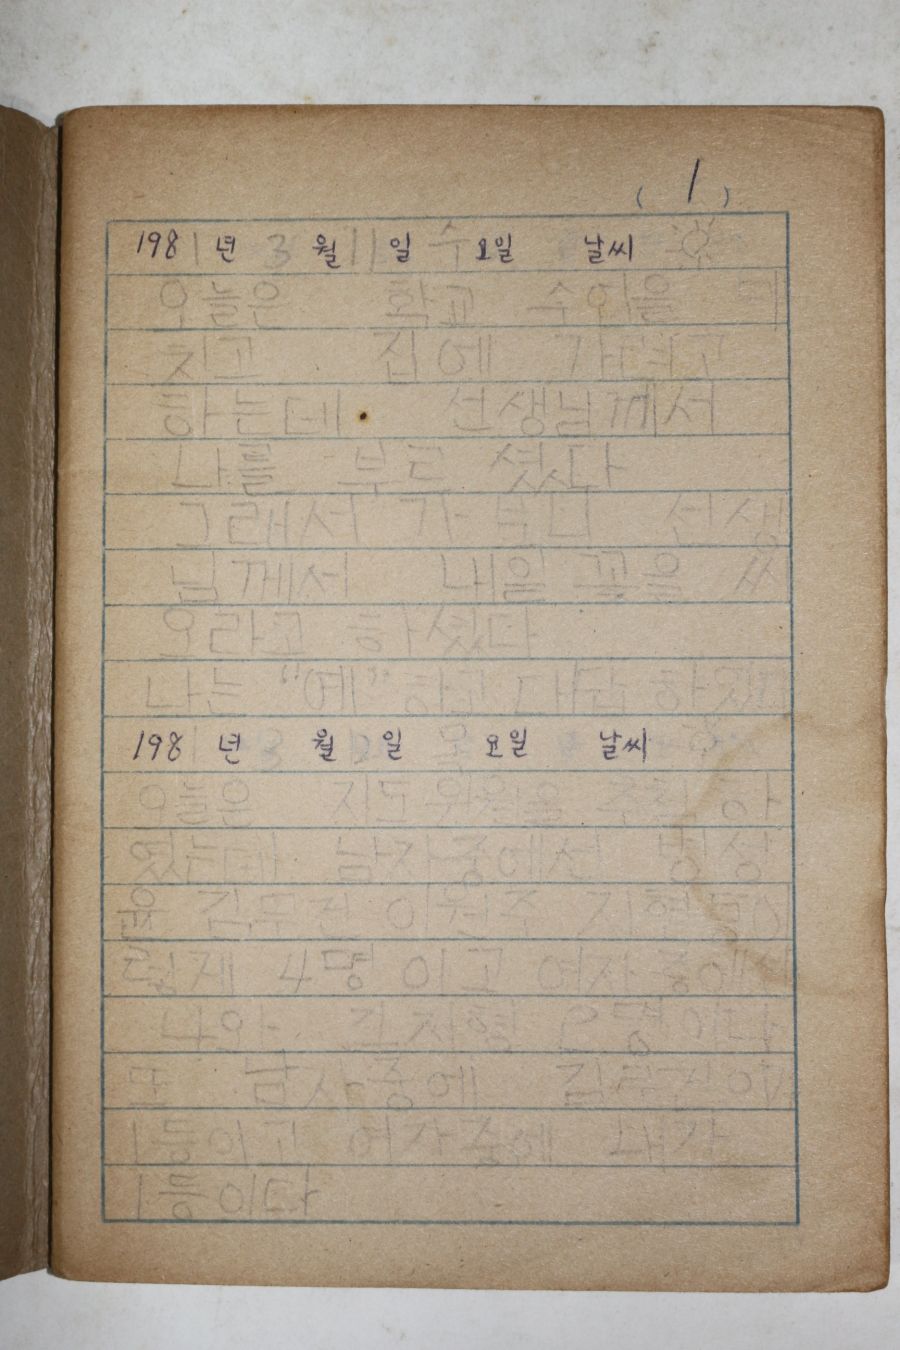 ( 1 )
198 1 년 3 월 11 일 수 요일 날씨
오늘은 학교 수업을 마
치고 집에 가려고
하는데 선생님께서
나를 부르 셨다
그래서 가 보니 선생
님께서 내일 꽃을 싸
오라고 하셨다
나는 "예" 하고 대답 하였다
198 1 년 3 월 12 일 목 요일 날씨
오늘은 지도 위원을 하
였는데 남자중에선
김무진 이원주
렇게 4명 이고 여자 중에
나와 2명이다
또 남자중에 김무진이
1등이고 여자중에 내가
1등이다